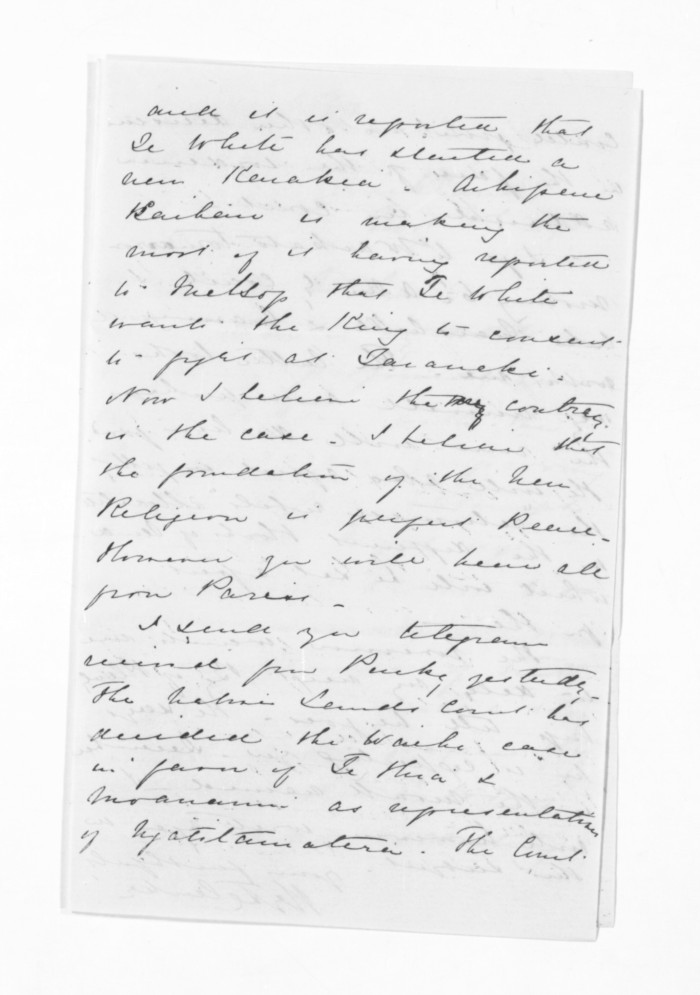 and it is reported that
Te White has started a
new Karakia. Arkipene
Kaihau is making the
most of it having reported
to Mellsop that Te White
wants the King to consent
to fight at Taranaki.
Now I believe the contrary
is the case. I believe that
the foundation of the New
Religion is perfect Peace.
However you will hear all
from Paris.
I send you telegram
received from Puckey yesterday.
The Native Lands Court has
decided the Waihi case
in favor of Te Hira &
Moananui as representatives
of Ngatitamatera. The Court